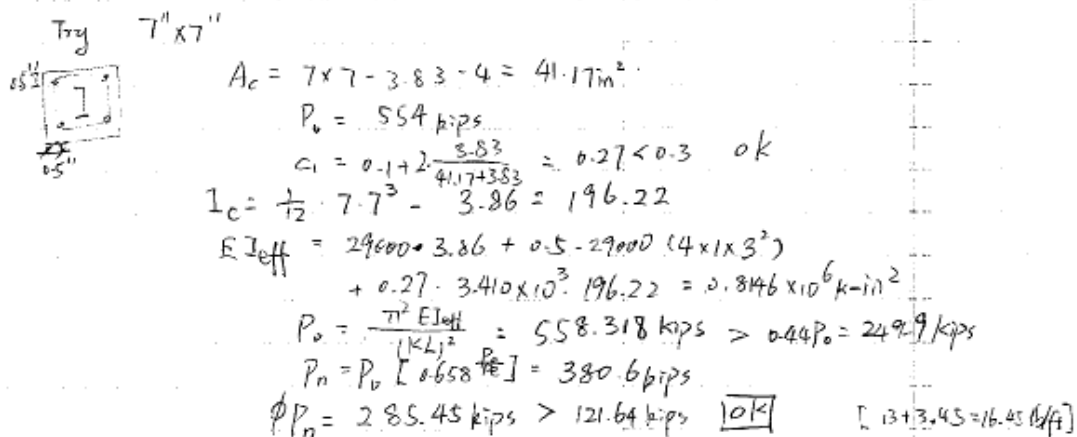 Try 7"x7"
0.5"
A_c = 7×7 - 3.83 - 4 = 41.17in².
P_o = 554 kips
C_1 = 0.1+2·\frac{3.83}{41.17+3.83} = 0.27<0.3 ok
I_c = \frac{1}{12}·7·7³ - 3.86 = 196.22
EI_eff = 29000·3.86 + 0.5·29000 (4×1×3²)
+ 0.27·3.410×10³·196.22 = 0.8146×10⁶ k-in²
P_e = \frac{π² EI_eff}{(KL)²} = 558.318 kips > 0.44P_o = 249.9 kips
P_n = P_o [0.658^{\frac{P_o}{P_e}}] = 380.6 kips
ϕP_n = 285.45 kips > 121.64 kips OK [13+3.45=16.45 lb/ft]
0.5"